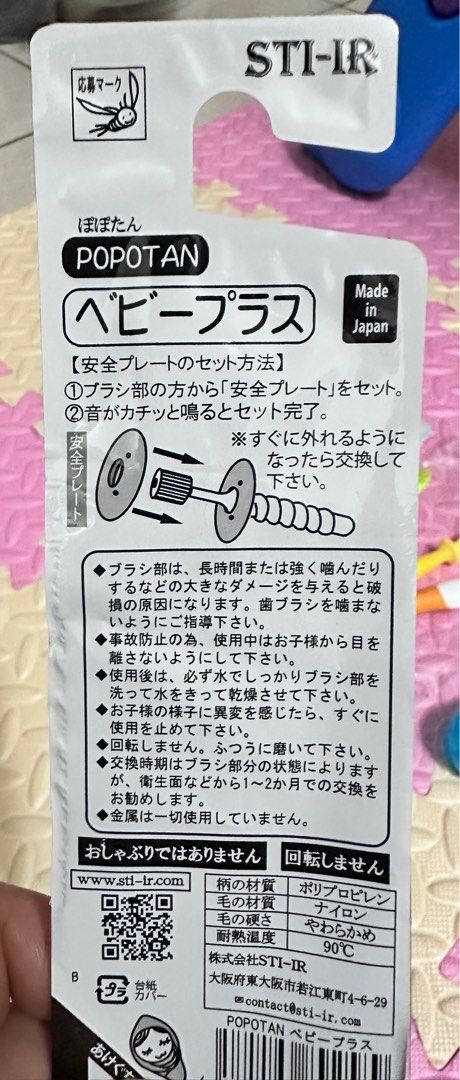 STI-IR
応募マーク
ぽぽたん
POPOTAN
ベビープラス
Made
in
Japan
【安全プレートのセット方法】
①ブラシ部の方から「安全プレート」をセット。
②音がカチッと鳴るとセット完了。
※すぐに外れるように
なったら交換して
下さい。
安全プレート
◆ブラシ部は、長時間または強く噛んだり
するなどの大きなダメージを与えると破
損の原因になります。歯ブラシを噛まな
いようにご指導下さい。
◆事故防止の為、使用中はお子様から目を
離さないようにして下さい。
◆使用後は、必ず水でしっかりブラシ部を
洗って水をきって乾燥させて下さい。
◆お子様の様子に異変を感じたら、すぐに
使用を止めて下さい。
◆回転しません。ふつうに磨いて下さい。
◆交換時期はブラシ部分の状態によります
が、衛生面などから1～2か月での交換を
お勧めします。
◆金属は一切使用していません。
おしゃぶりではありません
回転しません
www.sti-ir.com
柄の材質 ポリプロピレン
毛の材質 ナイロン
毛の硬さ やわらかめ
耐熱温度 90℃
株式会社STI-IR
大阪府東大阪市若江東町4-6-29
✉contact@sti-ir.com
B
プラ
台紙
カバー
POPOTAN ベビープラス